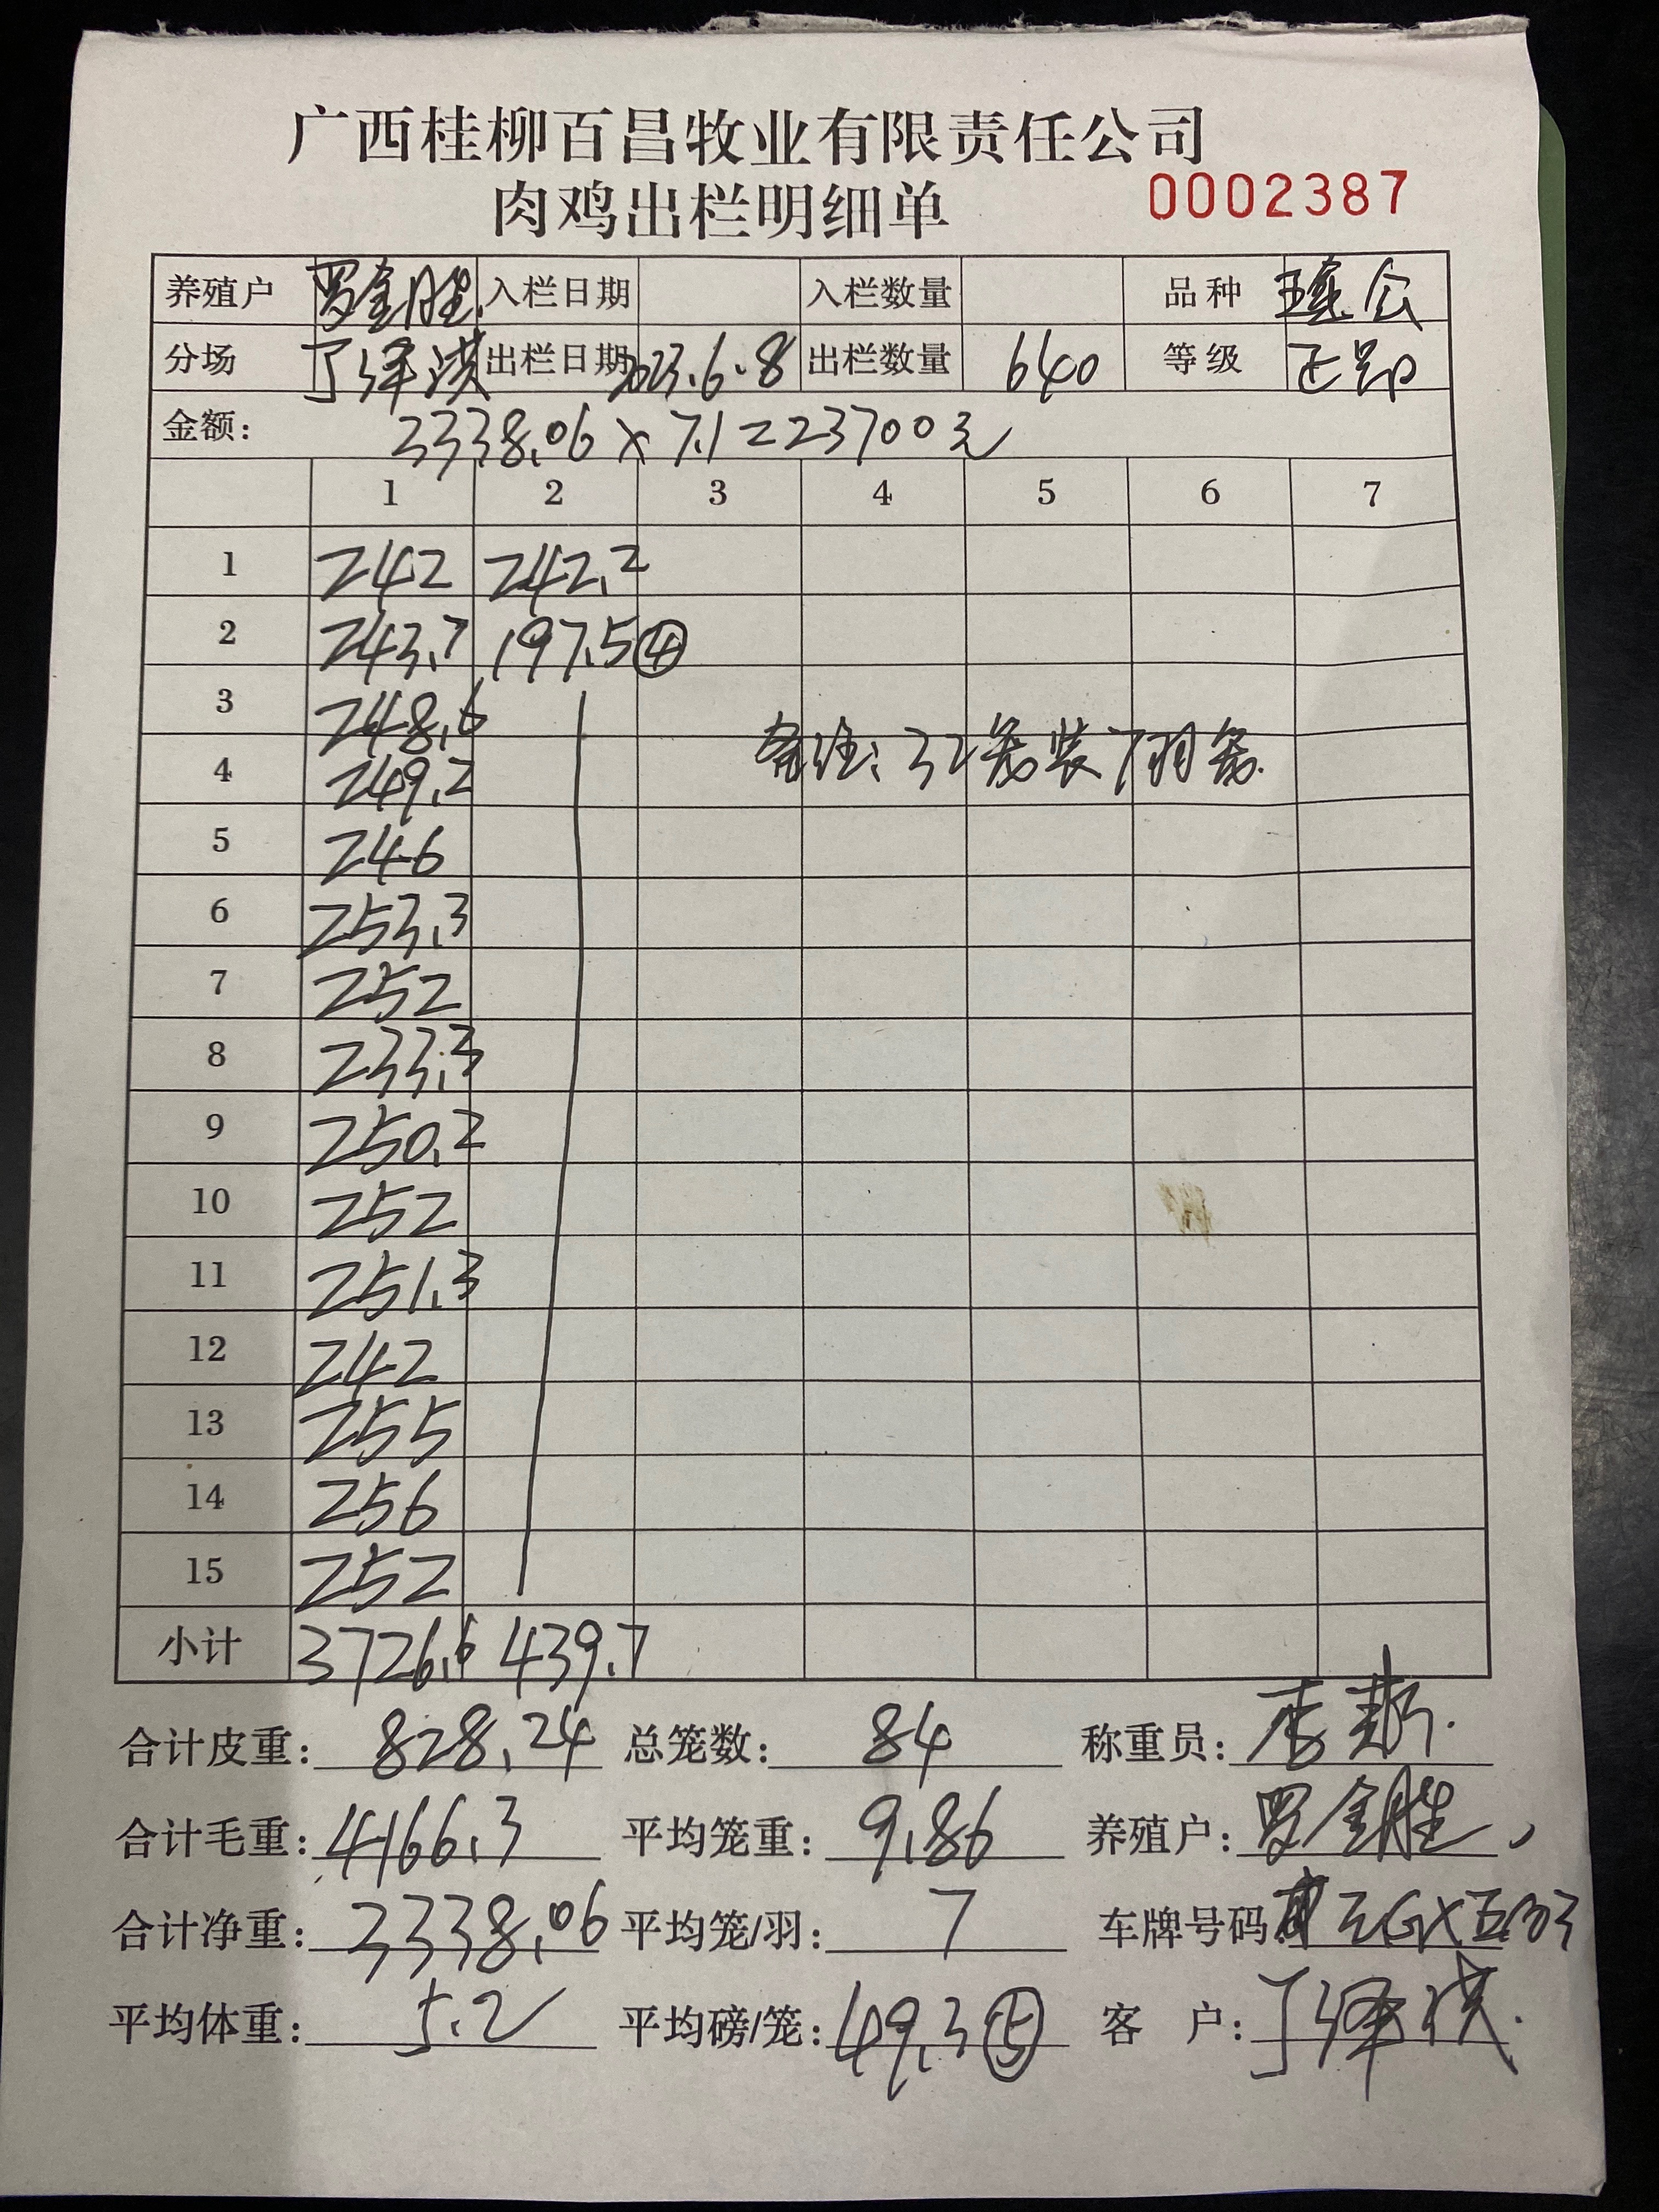 广西桂柳百昌牧业有限责任公司
肉鸡出栏明细单 0002387
养殖户 罗金胜 入栏日期 入栏数量 品种
分场 丁泽洪 出栏日期 2023.6.8 出栏数量 640 等级 正品
金额: 3338.06 x 7.1 = 23700元
1 2 3 4 5 6 7
1 242 242.2
2 243.7 197.5 ④
3 248.6
4 249.2 备注: 32笼装7羽
5 246
6 253.3
7 252
8 233.3
9 250.2
10 252
11 251.3
12 242
13 255
14 256
15 252
小计 3726.6 439.7
合计皮重: 828.24 总笼数: 84 称重员:
合计毛重: 4166.3 平均笼重: 9.86 养殖户: 罗金胜
合计净重: 3338.06 平均笼/羽: 7 车牌号码:
平均体重: 5.2 平均磅/笼: 49.3 ⑤ 客 户: 丁泽洪